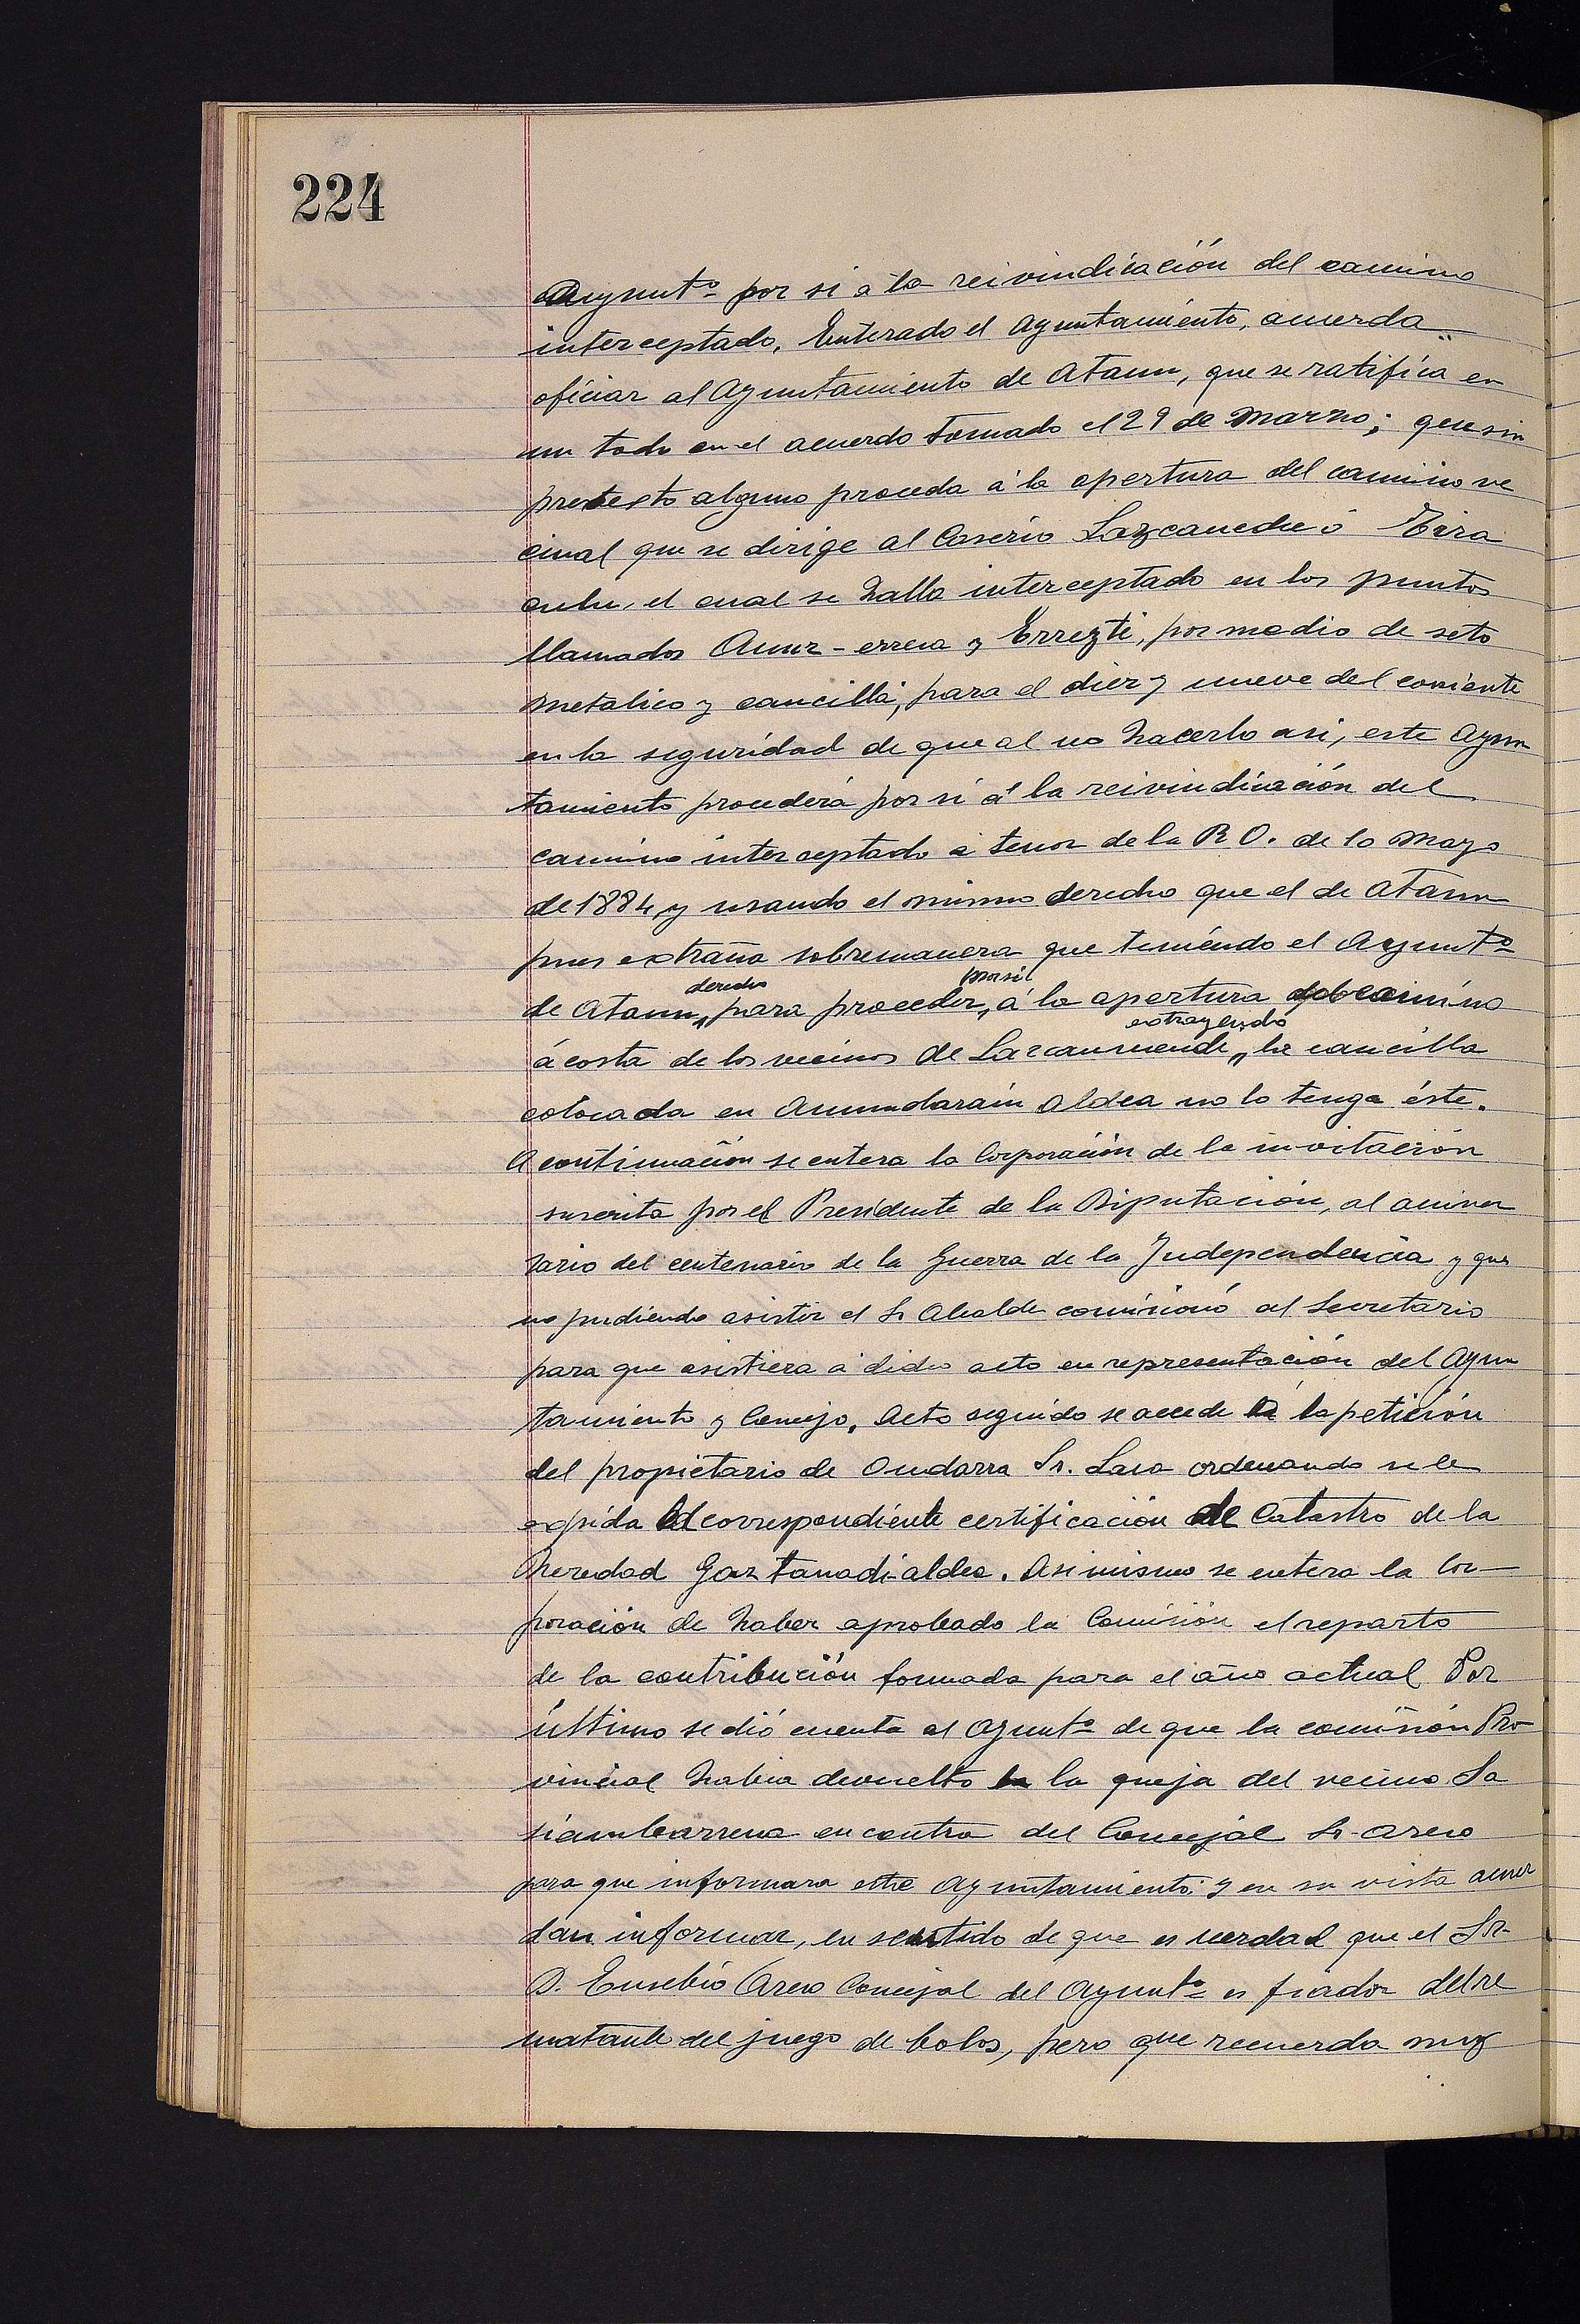 224
Ayunt.º por si á la reivindicación del camino
interceptado. Enterado el Ayuntamiento, acuerda
oficiar al Ayuntamiento de Ataun, que se ratifica en
un todo en el acuerdo tomado el 29 de Marzo; que sin
pretexto alguno proceda á la apertura del camino ve
cinal que se dirige al Caserio Lazcanedie ó
el cual se halla interceptado en los puntos
llamados Aunz-errena y Errezti, por medio de seto
metalico y cancilla, para el diez y nueve del corriente
en la seguridad de que al no hacerlo asi, este Ayun
tamiento procederá por si á la reivindicación del
camino interceptado á tenor de la R O. de 10 Mayo
de 1884, y usando el mismo derecho que el de Ataun
pues extraña sobremanera que teniendo el Ayunt.º
derecho por si
de Ataun, para proceder, á la apertura del camino
extrayendo
á costa de los vecinos de Lazcaumendi, la cancilla
colocada en Amundarain aldea no lo tenga éste.
A continuación se entera la Corporación de la invitación
suscrita por el Presidente de la Diputación, al aniver
sario del centenario de la Guerra de la Independencia y que
no pudiendo asistir el Sr Alcalde comisionó al Secretario
para que asistiera á dicho acto en representación del Ayun
tamiento y Concejo. Acto seguido se accede á la petición
del propietario de Ondarra Sr. Lasa ordenando se le
expida la correspondiente certificación de Catastro de la
heredad Gaztanadi-aldea. Asimismo se entera la Cor-
poración de haber aprobado la Comisión el reparto
de la contribución formada para el año actual Por
último se dió cuenta al Ayunt.º de que la comisión Pro
vincial habia devuelto la queja del vecino Sa
siambarrena en contra del Concejal Sr. Aseo
para que informara este Ayuntamiento: y en su vista acuer
dan informar, en sentido de que es verdad que el Sr.
D. Eusebio Aseo Concejal del Ayunt.º es fiador del re
matante del juego de bolos, pero que recuerda muy